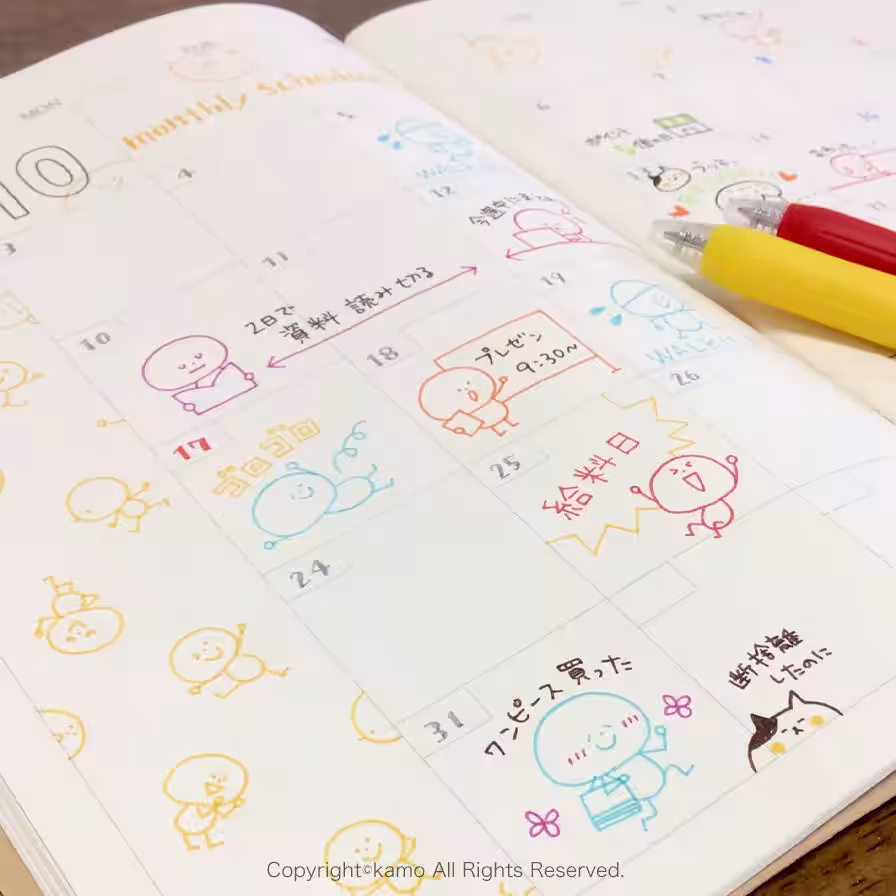 MON
Monthly Schedule
10
3
4
5
WALK
10
11
12
2日で
資料 読み切る
17
ゴロゴロ
18
プレゼン
9:30〜
19
WALK
24
25
給料日
26
31
ワンピース買った
断捨離
したのに
Copyright©kamo All Rights Reserved.